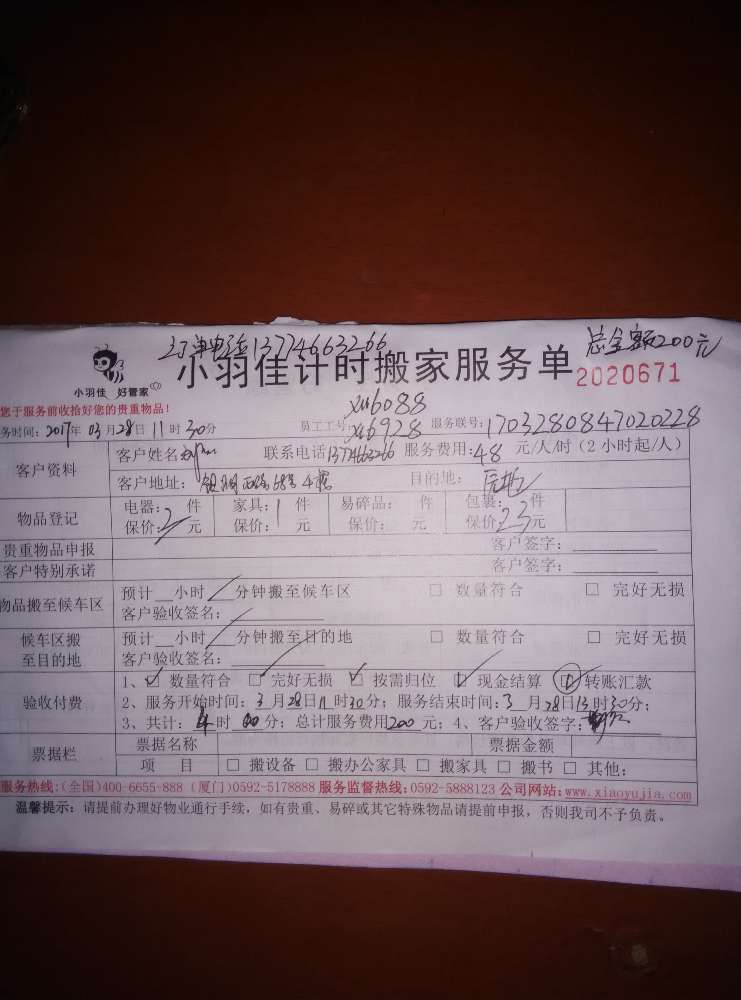 订单电话13774663266
总金额200元
小羽佳 好管家
小羽佳计时搬家服务单 2020671
您于服务前收拾好您的贵重物品!
xm6088
务时间:2017年03月28日11时30分 员工工号:xm6928 服务联号:1703280847020228
客户资料
客户姓名: 联系电话13774663266 服务费用:48元/人/时(2小时起/人)
客户地址: 68号4楼 目的地:
物品登记
电器:2件 家具:1件 易碎品: 件 包装: 件
保价: 元 保价: 元 保价: 元 保价: 元
贵重物品申报 客户签字:
客户特别承诺 客户签字:
物品搬至候车区
预计__小时__分钟搬至候车区 □ 数量符合 □ 完好无损
客户验收签名:
候车区搬至目的地
预计__小时__分钟搬至目的地 □ 数量符合 □ 完好无损
客户验收签名:
验收付费
1、☑ 数量符合 ☑ 完好无损 ☑ 按需归位 ☑ 现金结算 ☑ 转账汇款
2、服务开始时间:3月28日11时30分;服务结束时间:3月28日13时30分;
3、共计:4时00分;总计服务费用200元;4、客户验收签字:
票据栏
票据名称 票据金额
项 目 □ 搬设备 □ 搬办公家具 □ 搬家具 □ 搬书 □ 其他:
服务热线:(全国)400-6655-888 (厦门)0592-5178888 服务监督热线:0592-5888123 公司网站:www.xiaoyujia.com
温馨提示:请提前办理好物业通行手续,如有贵重、易碎或其它特殊物品请提前申报,否则我司不予负责。